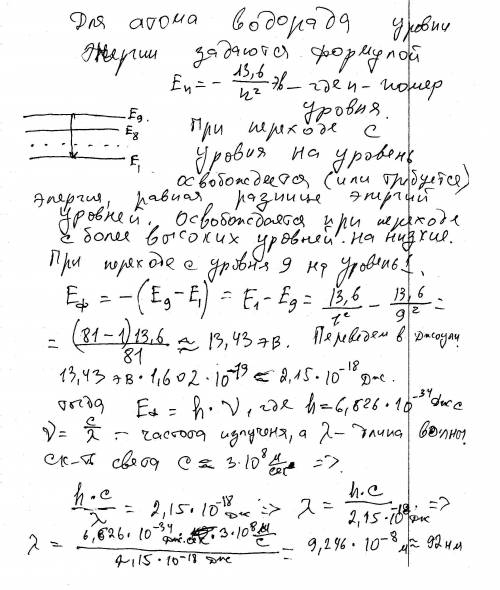 Для атома водорада уровни
энергии задаются формулой
E_n = - 13,6/n² эв – где n - номер
уровня.
E₉.
E₈
E₁
При переходе с
уровня на уровень
освобождается (или требуется)
энергия, равная разнице энергий
уровней. Освобождается при переходе
с более высоких уровней на низкие.
При переходе с уровня 9 на уровень 1.
E_ф = -(E₉ - E₁) = E₁ - E₉ = 13,6/1² - 13,6/9² =
= (81-1)13,6/81 ≈ 13,43 эв. Переведем в джоули
13,43 эв · 1,602 · 10⁻¹⁹ = 2,15 · 10⁻¹⁸ Дж.
тогда E_ф = h · ν, где h = 6,626 · 10⁻³⁴ Дж с
ν = c/λ – частота излученя, а λ – длина волны
ск-ть света c = 3 · 10⁸ м/сек =>.
h·c/λ = 2,15 · 10⁻¹⁸ Дж => λ = h·c/2,15·10⁻¹⁸ Дж =>
λ = 6,626 · 10⁻³⁴ Дж·с · 3·10⁸ м/с / 2,15 · 10⁻¹⁸ Дж = 9,246 · 10⁻⁸ м ≈ 92 нм